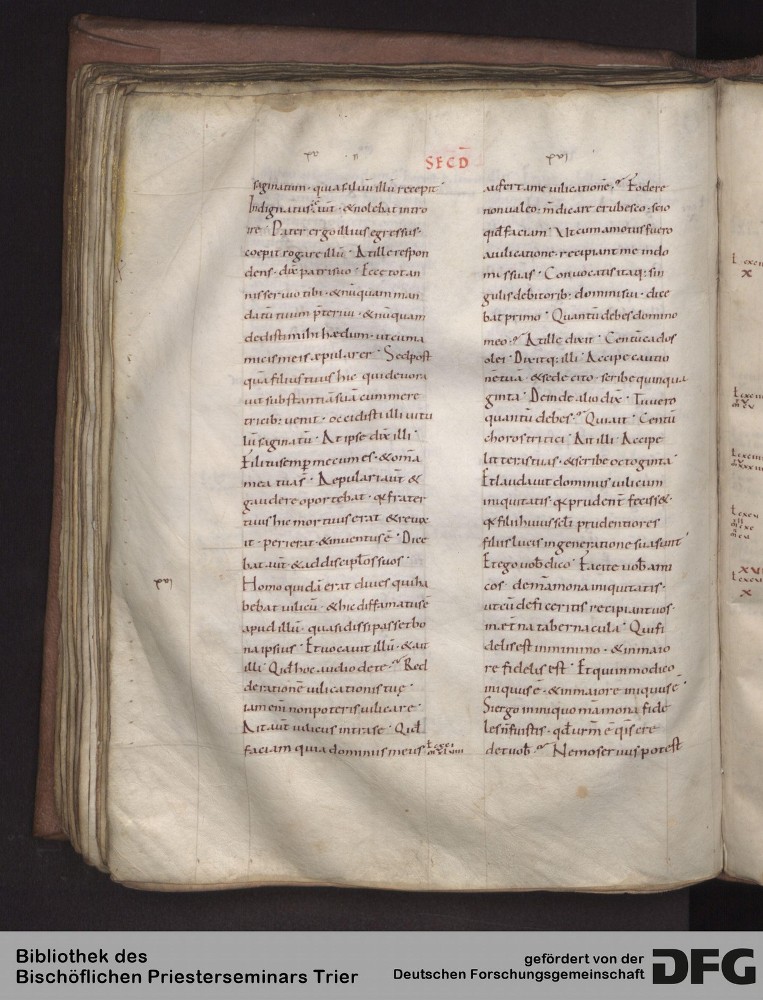 SECD
saginatum · quia saluu illu recepit
Indignatus : aut · & nolebat intro
ire · Pater ergo illius egressus ·
coepit rogare illu · At ille respon
dens · dix patri suo · Ecce tot an
nis seruio tibi · & nuquam man
datu tuum pteriui · & nuquam
dedisti mihi hædum · ut cum a
micis meis æpularer · Sed post
qua filius tuus hic qui deuora
uit substantia sua cum mere
tricib: uenit · occidisti illi uitu
lu saginatu · At ipse dix illi ·
Fili tu semp mecum es · & oma
mea tua s · Aepulari aut &
gaudere oportebat · q frater
tuus hic mortuus erat & reuix
it · perierat & inuentus e · Dice
bat aut & ad discipłos suos ·
Homo quida erat diues qui ha
bebat uilicu · & hic diffamatus e
apud illu · quasi dissipasset bo
na ipsius · Et uocauit illu · & ait
illi · Qid hoc audio de te · Red
de ratione uilicationis tuę
iam eni non poteris uilicare ·
Ait aut uilicus intra se · Qid
faciam quia dominus meus
xvi
aufert a me uilicatione · Fodere
non ualeo · mdicare erubesco · scio
qid faciam · Ut cum amotus fuero
a uilicatione · recipiant me in do
mus suas · Conuocatis itaq: sin
gulis debitorib: domini sui · dice
bat primo · Quantu debes domino
meo · At ille dixit · Centu cados
olei · Dixitq: illi · Accipe cautio
ne tua · & sede cito · scribe quinqua
ginta · Deinde alio dix · Tu uero
quantu debes · Qui ait · Centu
choros tritici · Ait illi · Accipe
litteras tuas · & scribe octoginta ·
Et laudauit dominus uilicum
iniquitatis · q prudent fecisse& ·
q filii huius scli prudentiores
filiis lucis in generatione sua sunt
Et ego uob dico · Facite uob ami
cos · de mamona iniquitatis ·
ut cu defeceritis recipiant uos ·
in etna tabernacula · Qui fi
delis est in minimo · & in maio
re fidelis est · Et qui in modico
iniquus e · & in maiore iniquus e ·
Si ergo in iniquo mamona fide
les n fuistis · qd urm e qis cre
det uob · Nemo seruus potest
Bibliothek des
Bischöflichen Priesterseminars Trier
gefördert von der
Deutschen Forschungsgemeinschaft
DFG